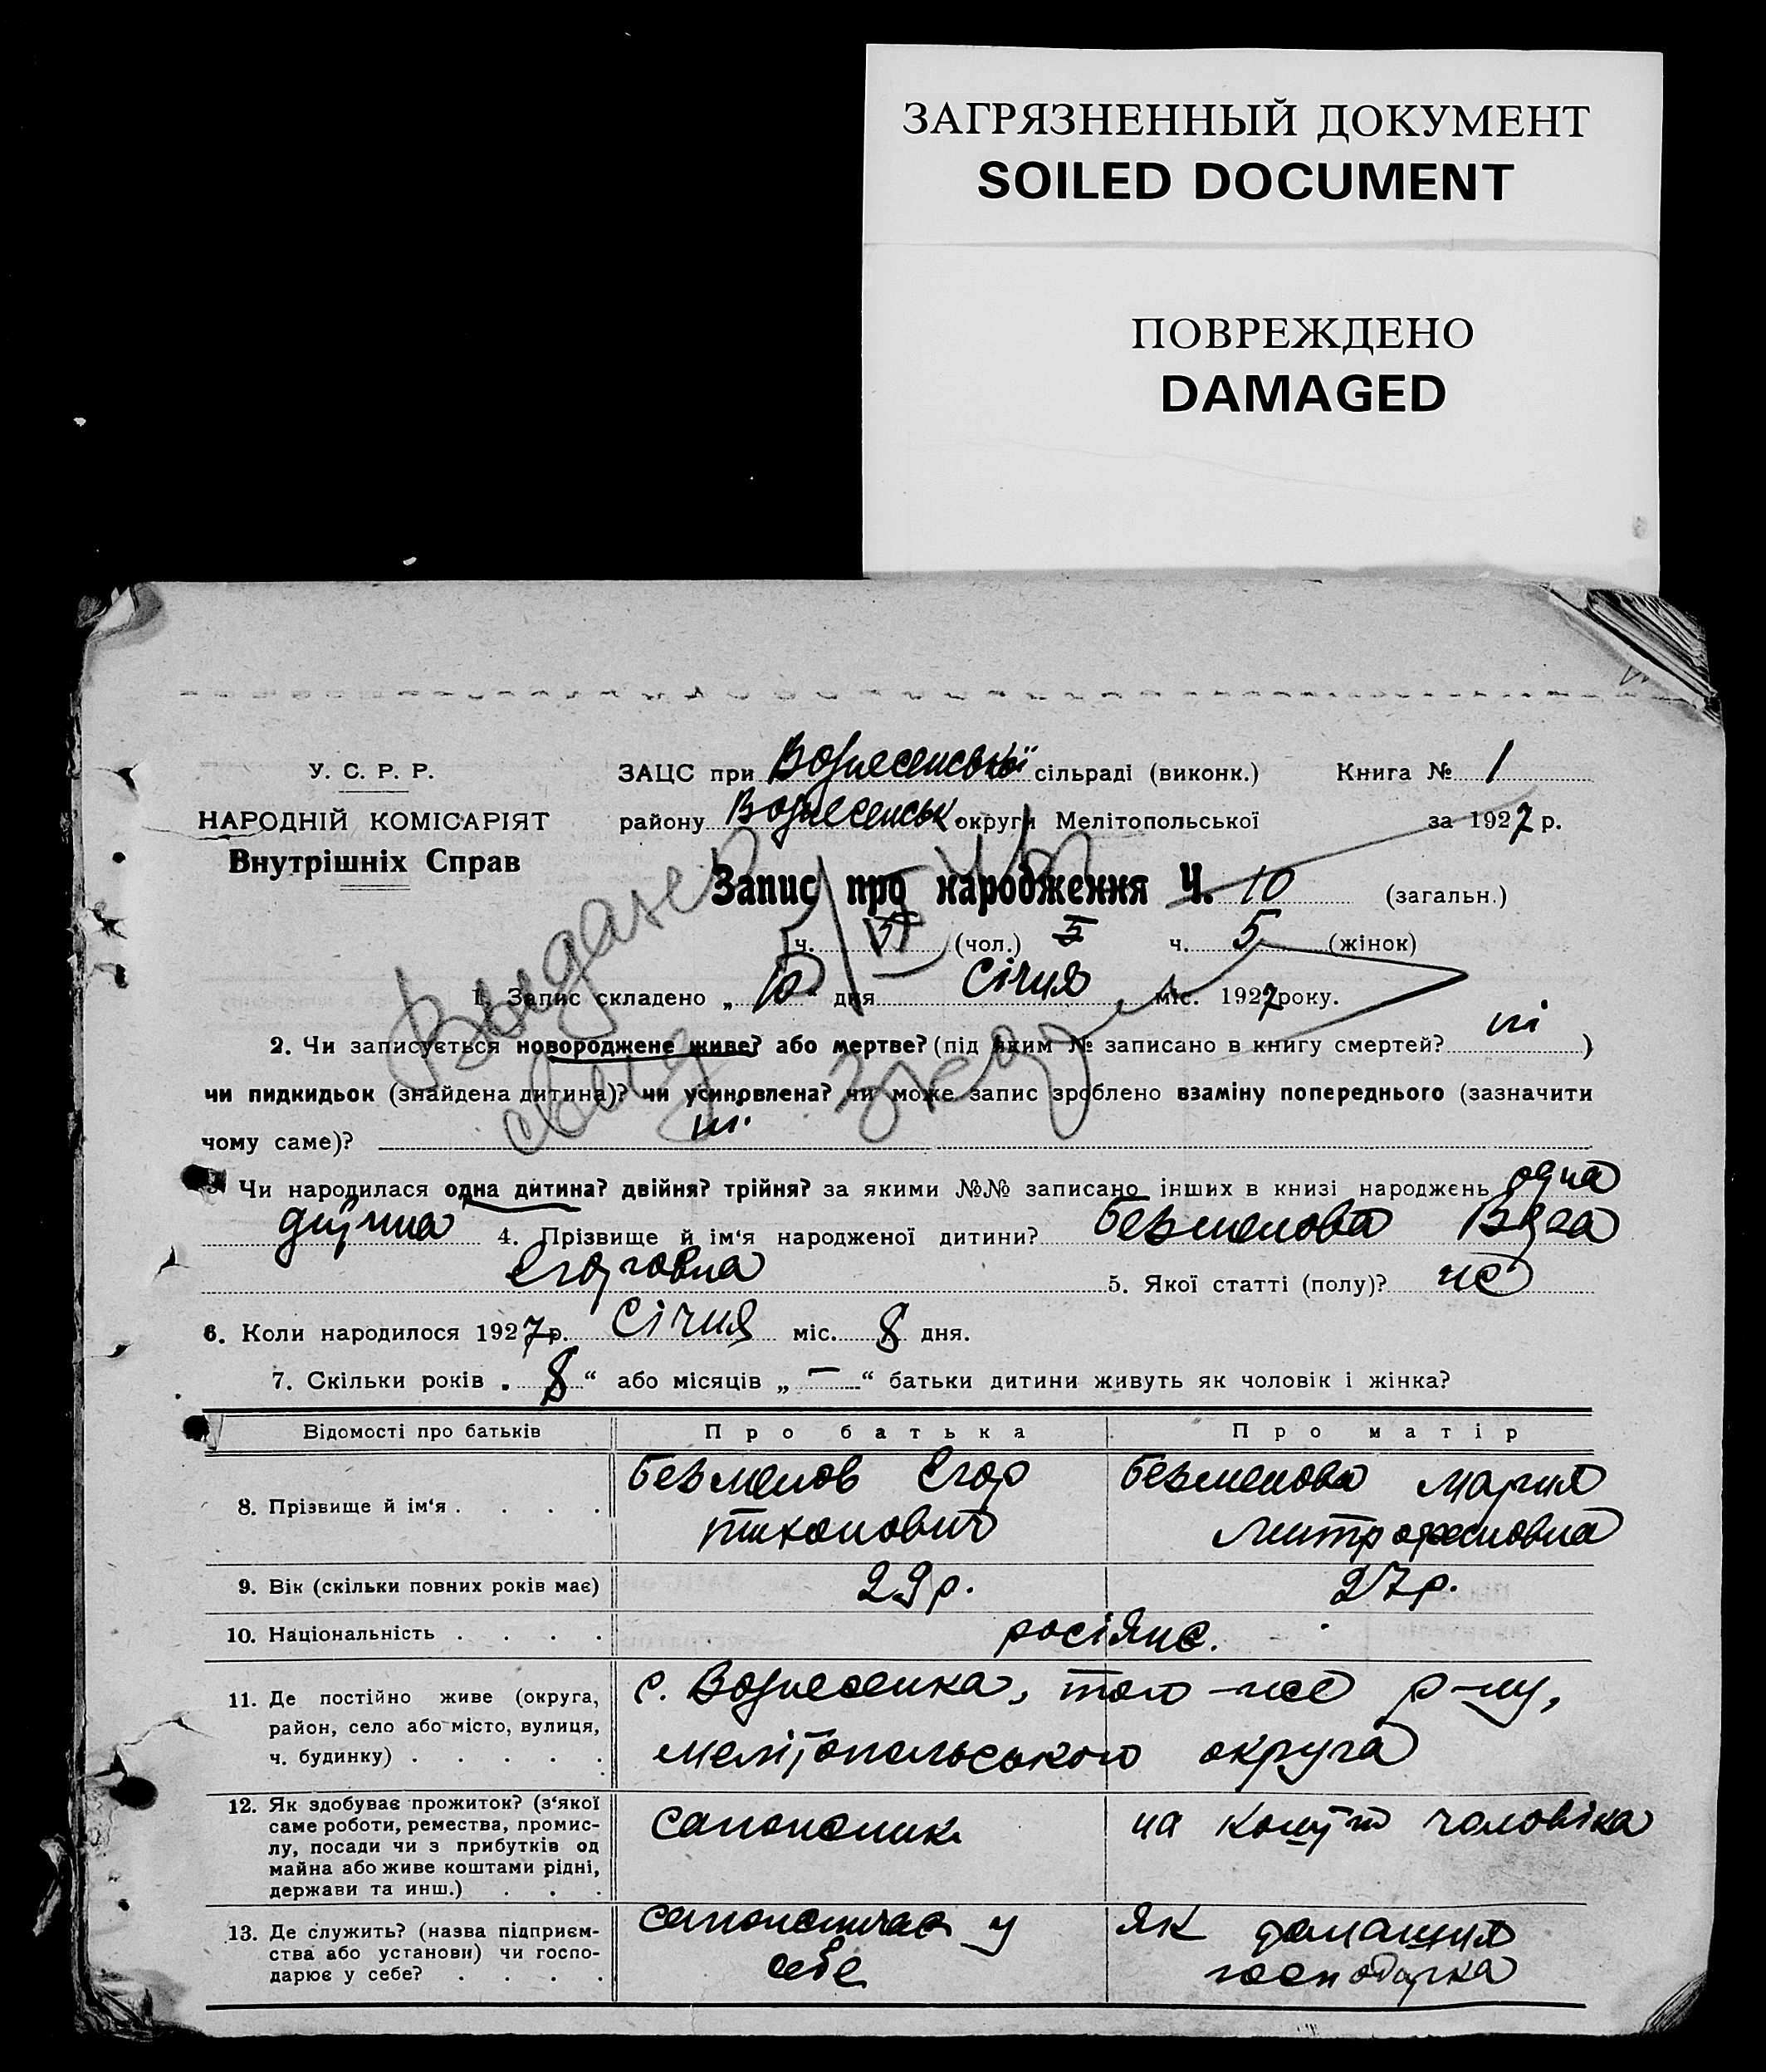 ЗАГРЯЗНЕННЫЙ ДОКУМЕНТ
SOILED DOCUMENT
ПОВРЕЖДЕНО
DAMAGED
У. С. Р. Р.
НАРОДНІЙ КОМІСАРІЯТ
Внутрішніх Справ
ЗАЦС при Вознесенській сільраді (виконк.) Книга № 1
району Вознесенськ. округи Мелітопольської за 1927 р.
Запис про народження Ч. 10 (загальн.)
ч. (чол.) 5 ч. 5 (жінок)
1. Запис складено „10“ дня Січня міс. 1927 року.
2. Чи записується новороджене живе? або мертве? (під яким № записано в книгу смертей? ні )
чи пидкидьок (знайдена дитина)? чи усиновлена? чи може запис зроблено взаміну попереднього (зазначити
чому саме)? ні.
3. Чи народилася одна дитина? двійня? трійня? за якими №№ записано інших в книзі народжень одна
4. Прізвище й ім‘я народженої дитини? Безменова
Егоровна 5. Якої статті (полу)? же
6. Коли народилося 1927 р. Січня міс. 8 дня.
7. Скільки років „8“ або місяців „—“ батьки дитини живуть як чоловік і жінка?
Відомості про батьків Про батька Про матір
8. Прізвище й ім‘я . . . . Безменов Егор Тихонович Безменова Мария Митрофановна
9. Вік (скільки повних років має) 29 р. 27 р.
10. Національність . . . . росіяне.
11. Де постійно живе (округа, район, село або місто, вулиця, ч. будинку) . . . . . с. Вознесенка, того-же р-ну, мелітопольського округа
12. Як здобуває прожиток? (з‘якої саме роботи, ремества, промислу, посади чи з прибутків од майна або живе коштами рідні, держави та инш.) . . . на кошти чоловіка
13. Де служить? (назва підприємства або установи) чи господарює у себе? . . . . у себе як домашня господарка